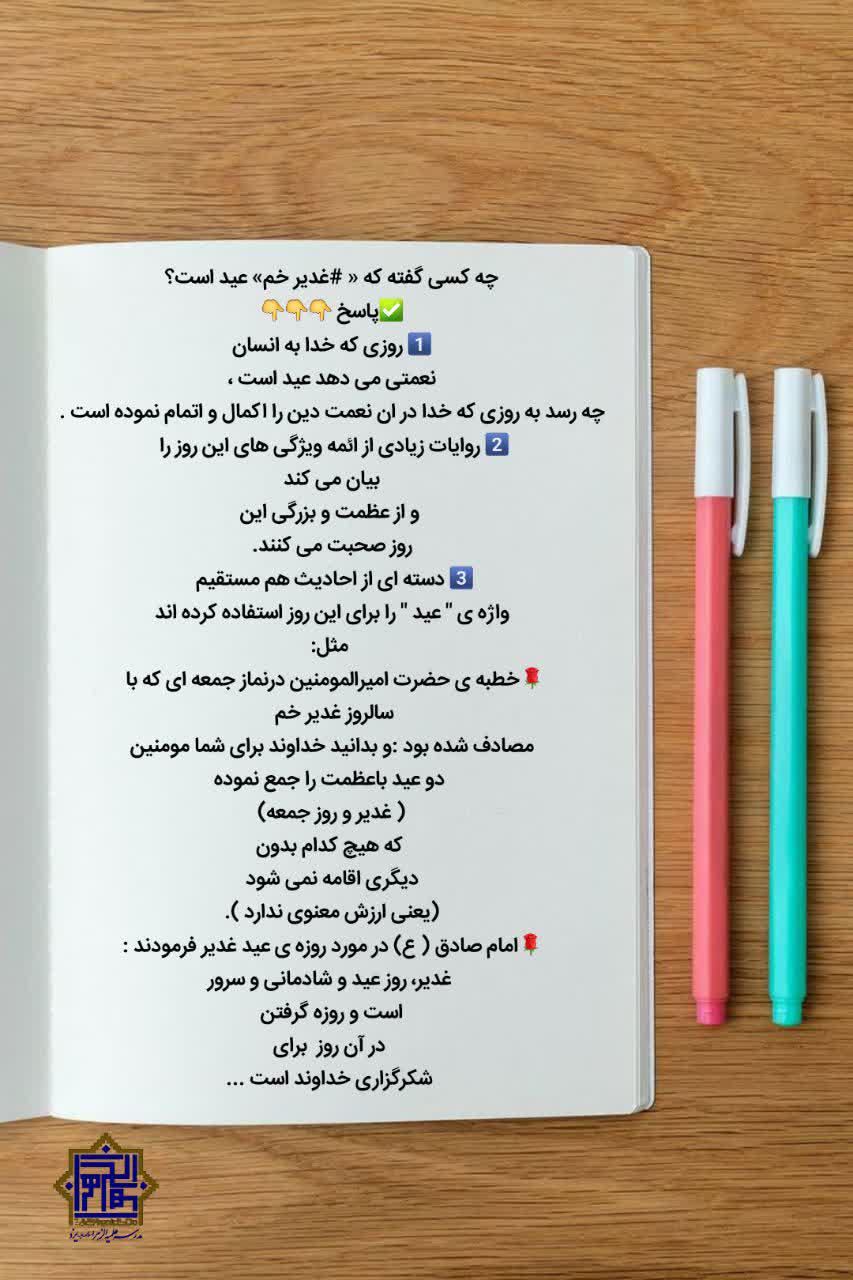 چه کسی گفته که « #غدیر خم» عید است؟
✅پاسخ 👇👇👇
1️⃣ روزی که خدا به انسان
نعمتی می دهد عید است ،
چه رسد به روزی که خدا در ان نعمت دین را اکمال و اتمام نموده است .
2️⃣ روایات زیادی از ائمه ویژگی های این روز را
بیان می کند
و از عظمت و بزرگی این
روز صحبت می کنند.
3️⃣ دسته ای از احادیث هم مستقیم
واژه ی " عید " را برای این روز استفاده کرده اند
مثل:
🌹خطبه ی حضرت امیرالمومنین درنماز جمعه ای که با
سالروز غدیر خم
مصادف شده بود :و بدانید خداوند برای شما مومنین
دو عید باعظمت را جمع نموده
( غدیر و روز جمعه)
که هیچ کدام بدون
دیگری اقامه نمی شود
(یعنی ارزش معنوی ندارد ).
🌹امام صادق ( ع) در مورد روزه ی عید غدیر فرمودند :
غدیر، روز عید و شادمانی و سرور
است و روزه گرفتن
در آن روز برای
شکرگزاری خداوند است ...